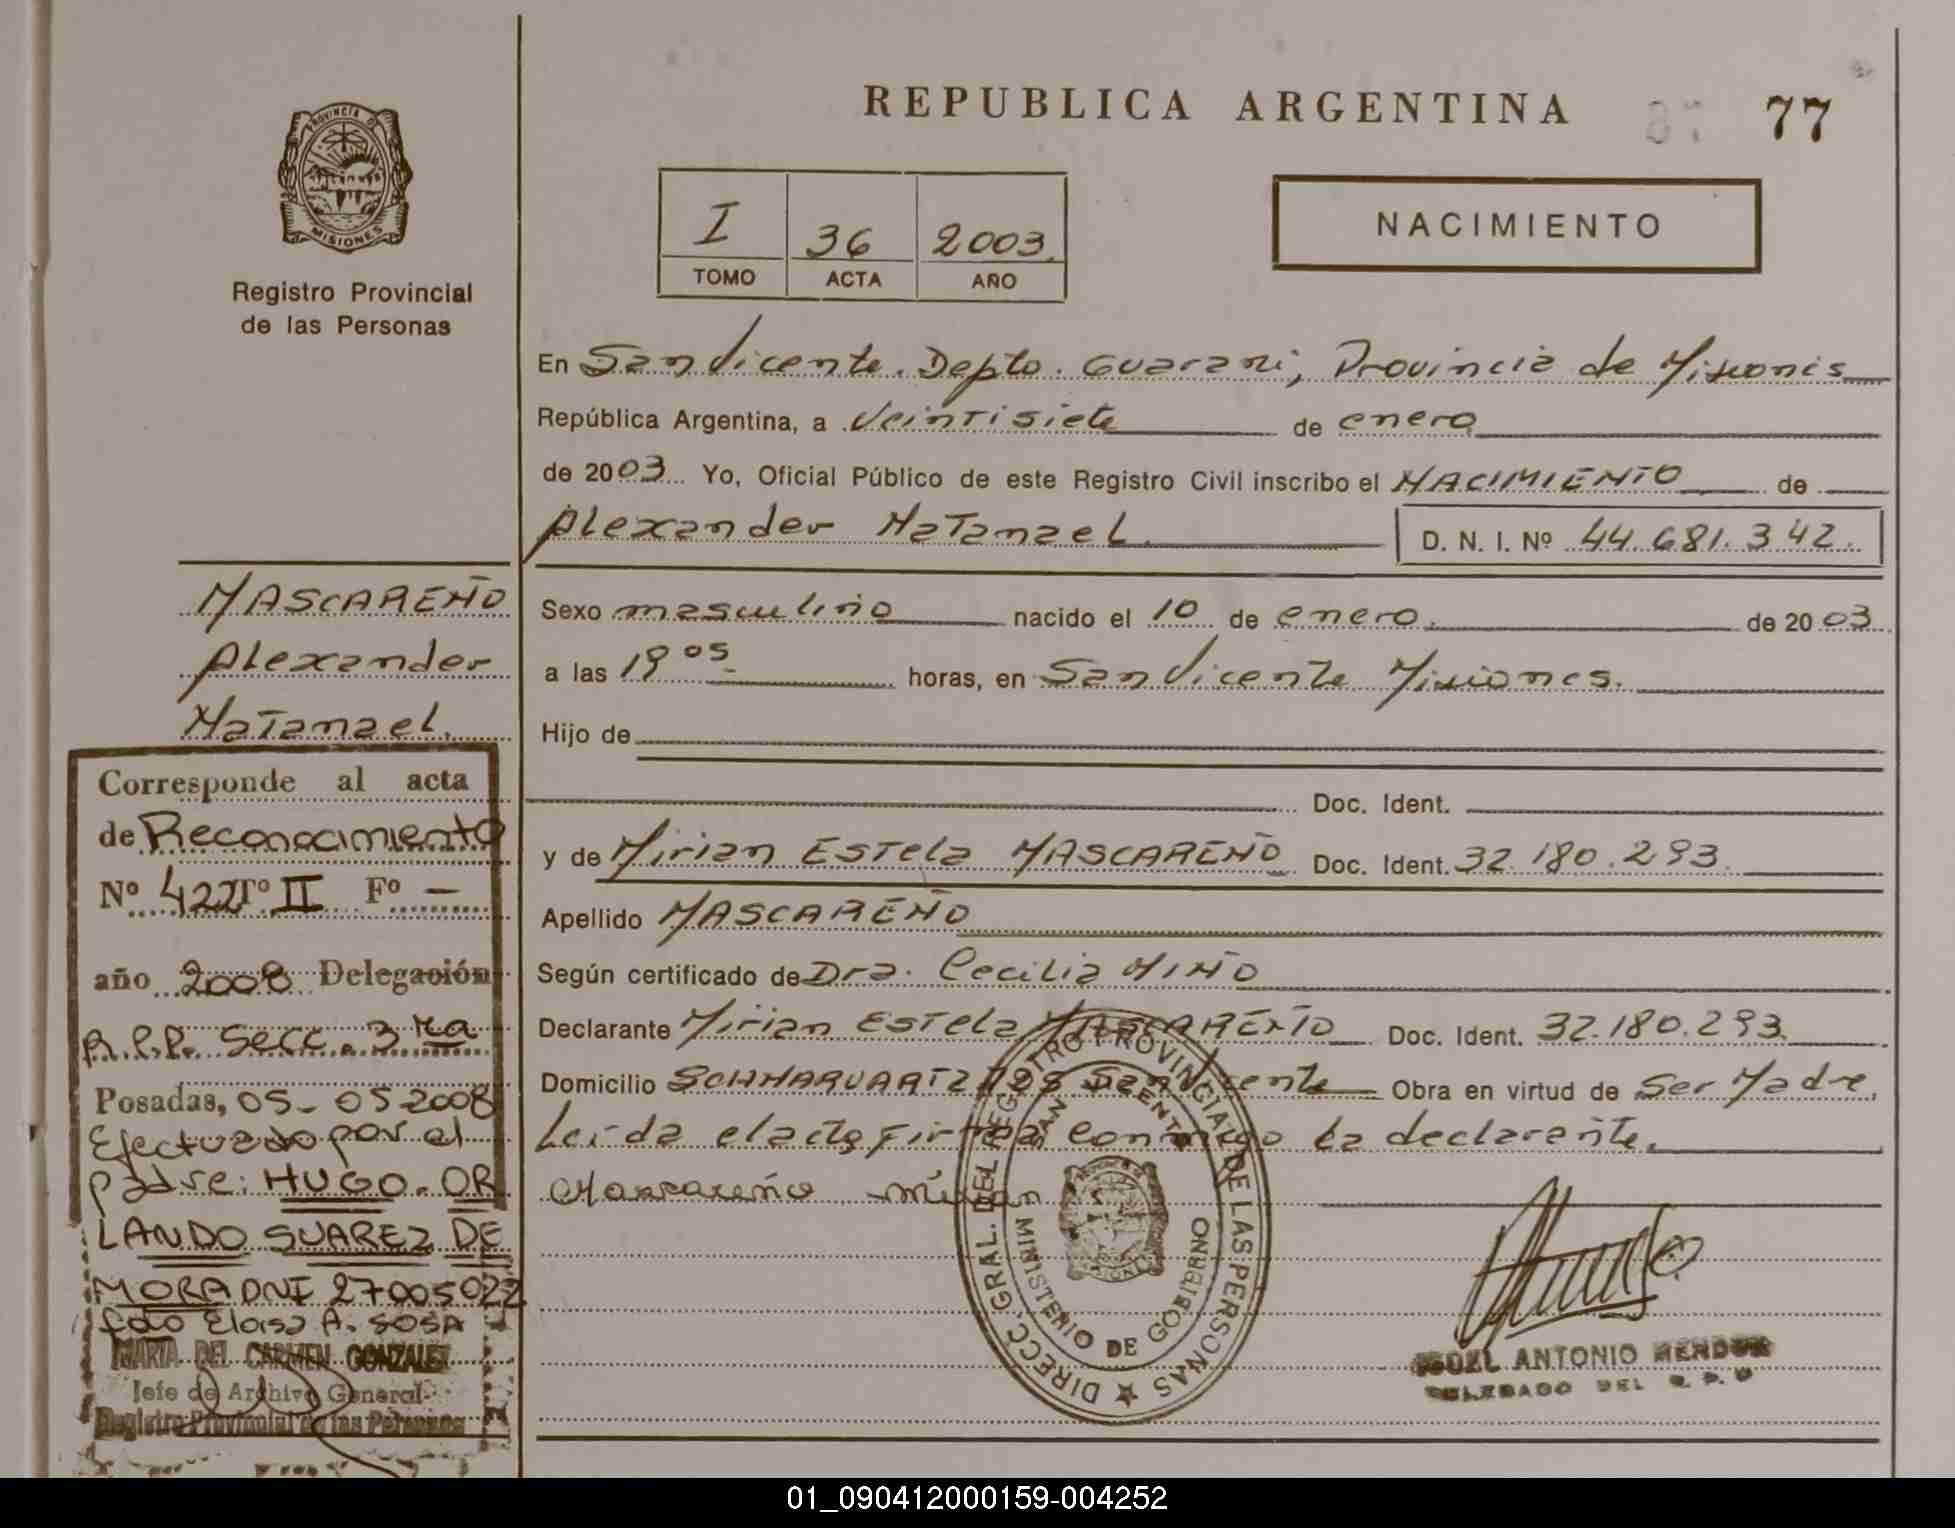 REPUBLICA ARGENTINA
77
PROVINCIA D
MISIONES
Registro Provincial
de las Personas
I 36 2003.
TOMO ACTA AÑO
NACIMIENTO
En San Vicente. Depto. Guarani, Provincia de Misiones
República Argentina, a veintisiete de enero
de 2003 Yo, Oficial Público de este Registro Civil inscribo el NACIMIENTO de
Alexander Natanael. D. N. I. Nº 44.681.342.
MASCAREÑO
Alexander
Natanael.
Sexo masculino nacido el 10 de enero. de 2003
a las 19 05 horas, en San Vicente Misiones.
Hijo de
Doc. Ident.
y de Mirian Estela MASCAREÑO Doc. Ident. 32.180.293.
Apellido MASCAREÑO
Según certificado de Dra. Cecilia MIÑO
Declarante Mirian Estela MASCAREÑO Doc. Ident. 32.180.293.
Domicilio San Vicente Obra en virtud de Ser Madre,
Leida el acta firma conmigo la declarante.
Mascareño Mirian
Corresponde al acta
de Reconocimiento
Nº 422 Tº II Fº —
año 2008 Delegación
R.P.P. Secc. 3ra
Posadas, 05- 05 2008
Efectuado por el
padre: HUGO. OR
LANDO SUAREZ DE
MORA DNI 27005022
fdo Eloisa A. SOSA
MARIA DEL CARMEN GONZALEZ
Jefe de Archivo General
Registro Provincial de las Personas
DIRECC. GRAL. DEL REGISTRO PROVINCIAL DE LAS PERSONAS
SAN VICENTE
MINISTERIO DE GOBIERNO
ANTONIO
DELEGADO DEL R. P. P
01_090412000159-004252